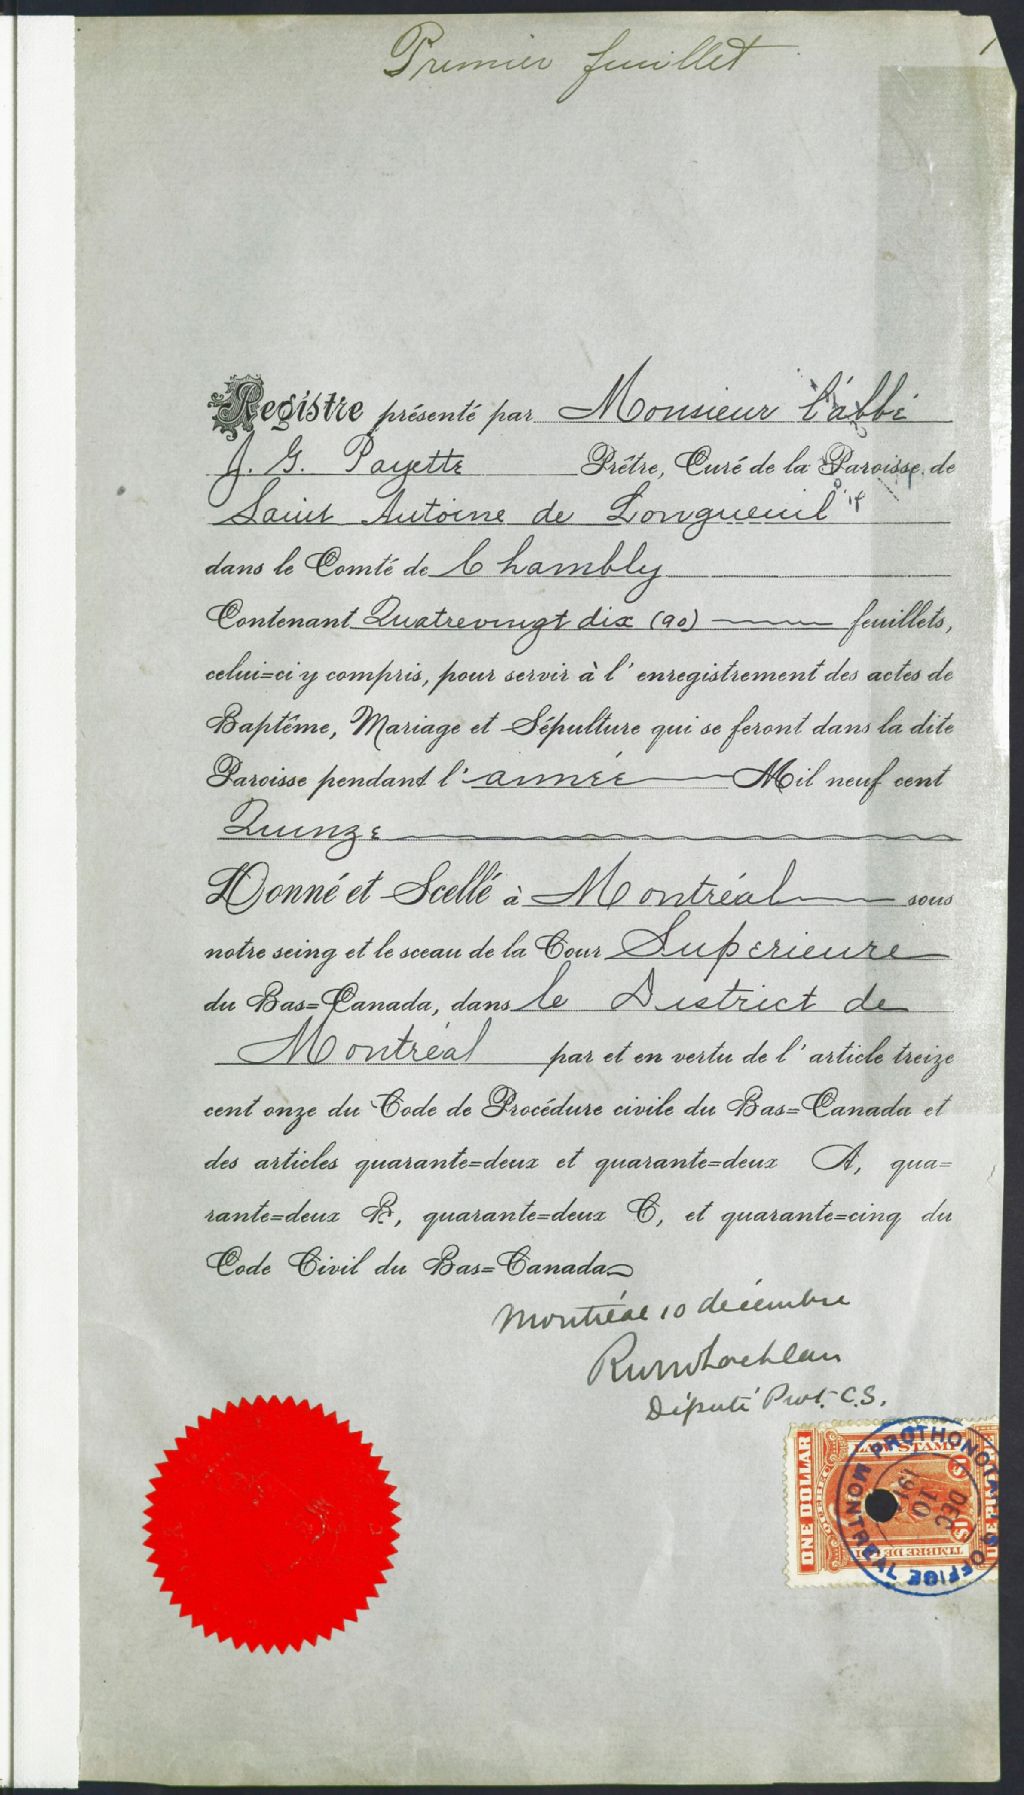 Premier feuillet
Registre présenté par Monsieur l'abbé
J. G. Payette Prêtre, Curé de la Paroisse de
Saint Antoine de Longueuil
dans le Comté de Chambly
Contenant Quatrevingt dix (90) feuillets,
celui=ci y compris, pour servir à l'enregistrement des actes de
Baptême, Mariage et Sépulture qui se feront dans la dite
Paroisse pendant l'année Mil neuf cent
Quinze
Donné et Scellé à Montréal sous
notre seing et le sceau de la Cour Supérieure
du Bas=Canada, dans le District de
Montréal par et en vertu de l'article treize
cent onze du Code de Procédure civile du Bas=Canada et
des articles quarante=deux et quarante=deux A, qua=
rante=deux B, quarante=deux C, et quarante=cinq du
Code Civil du Bas=Canada
Montréal 10 décembre
Député Prot. C.S.
ONE DOLLAR
LAW STAMP
QUEBEC
TIMBRE DE
PROTHONOTARY'S OFFICE
MONTREAL
DEC
10